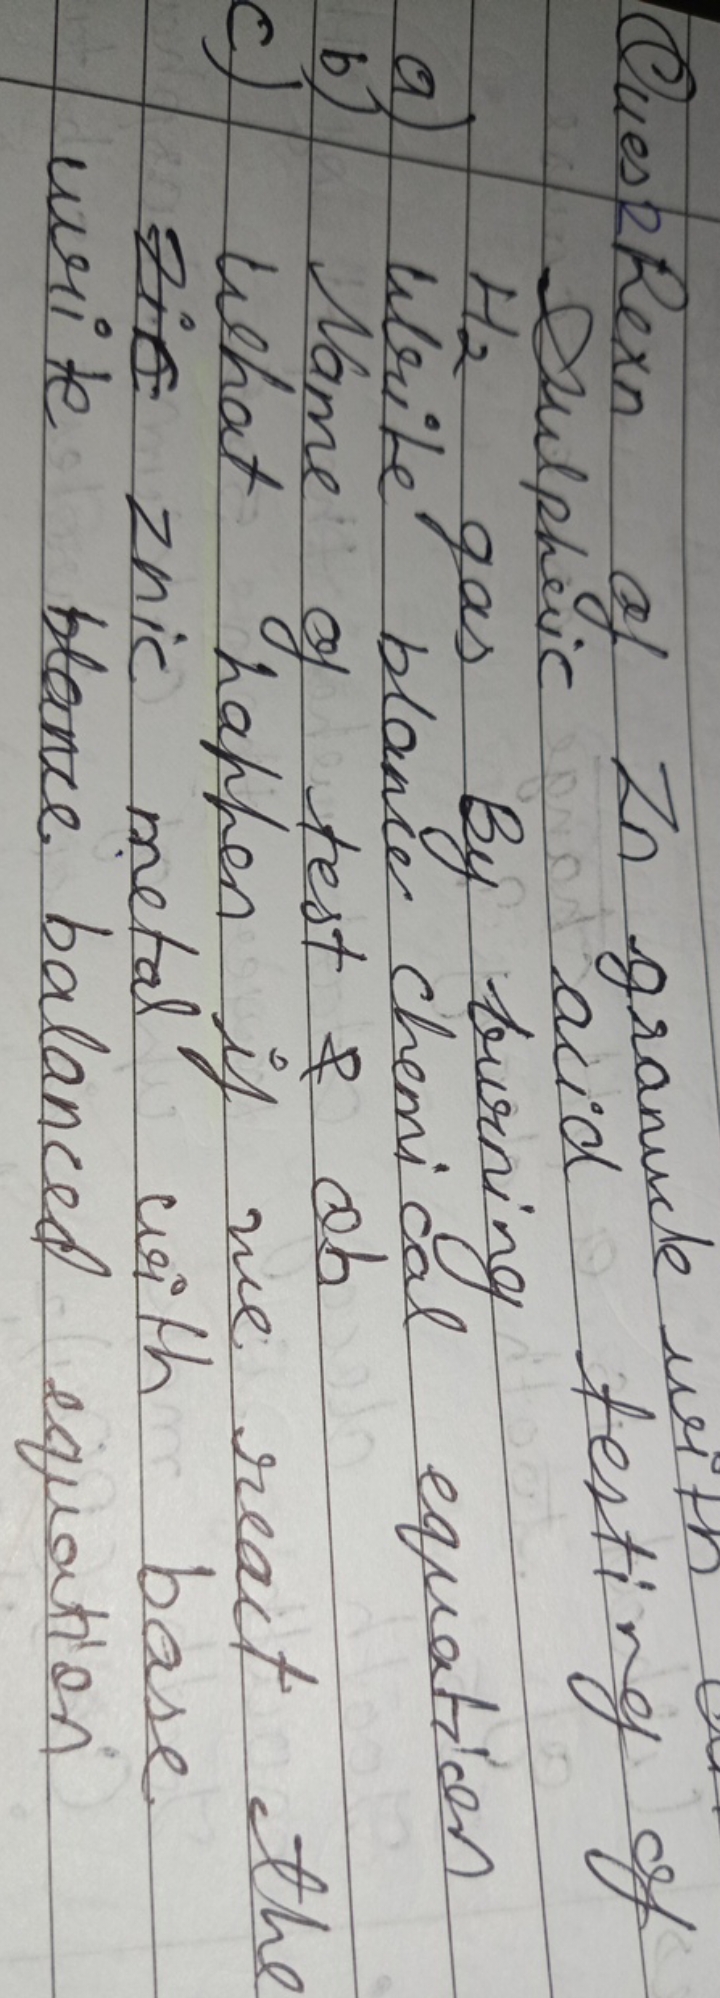 Ques 2 Rexn of Zn granule with
Sulpheric acid testing of
H2 gas By burning
a) Write blance chemical equation
b) Name of test & ob
c) What happen if we react the
znic metal with base.
write blance balanced equation